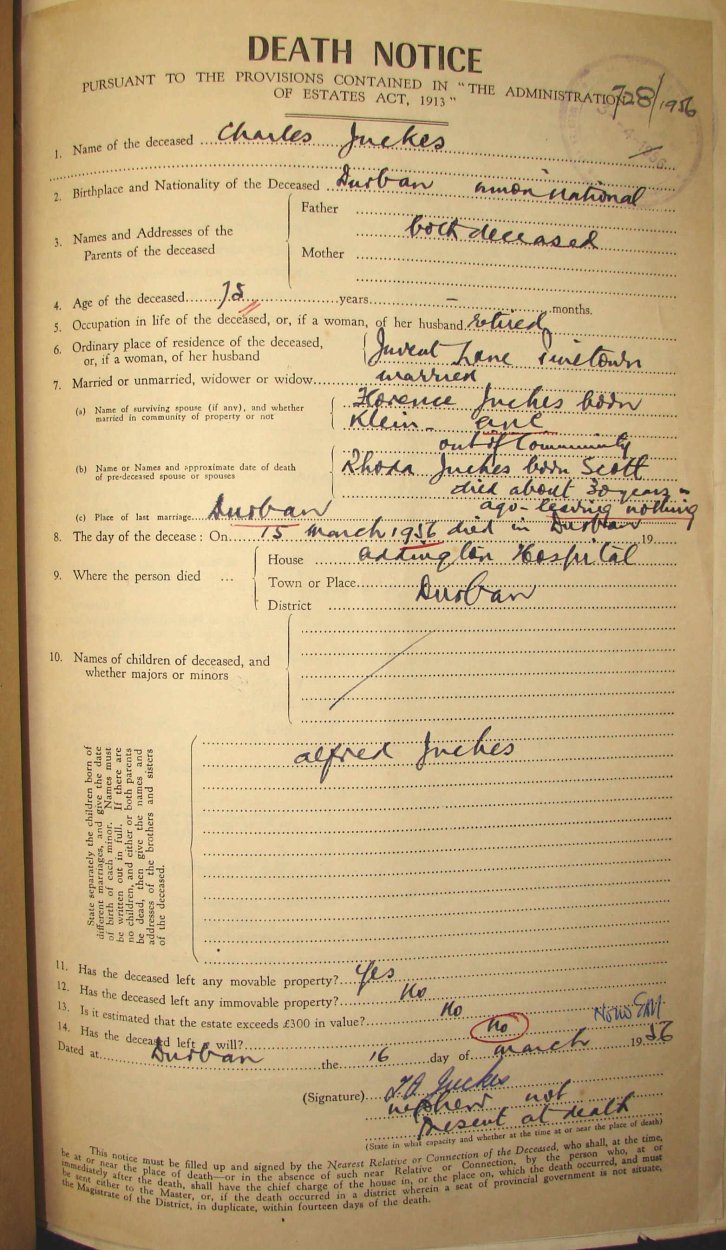 DEATH NOTICE
PURSUANT TO THE PROVISIONS CONTAINED IN "THE ADMINISTRATION
OF ESTATES ACT, 1913"
728/1956
1. Name of the deceased Charles Juckes
2. Birthplace and Nationality of the Deceased Durban Union National
3. Names and Addresses of the Parents of the deceased
Father
both deceased
Mother
4. Age of the deceased 75 years – months.
5. Occupation in life of the deceased, or, if a woman, of her husband retired
6. Ordinary place of residence of the deceased, or, if a woman, of her husband
Lane Pinetown
7. Married or unmarried, widower or widow married
(a) Name of surviving spouse (if any), and whether married in community of property or not
Florence Juckes born
Klein – and
out of Community
(b) Name or Names and approximate date of death of pre-deceased spouse or spouses
Rhoda Juckes born Scott
died about 30 years
ago – leaving nothing
(c) Place of last marriage Durban
8. The day of the decease: On 15 March 1956 died in Durban 19
9. Where the person died ...
House Addington Hospital
Town or Place Durban
District
10. Names of children of deceased, and whether majors or minors
State separately the children born of
different marriages, and give the date
of birth of each minor. Names must
be written out in full. If there are
no children, and either or both parents
be dead, then give the names and
addresses of the brothers and sisters
of the deceased.
Alfred Juckes
11. Has the deceased left any movable property? Yes
12. Has the deceased left any immovable property? No
13. Is it estimated that the estate exceeds £300 in value? No
14. Has the deceased left a will? No
Dated at Durban the 16 day of March 1956
(Signature) Juckes
nephew not
present at death
(State in what capacity and whether at the time at or near the place of death)
This notice must be filled up and signed by the Nearest Relative or Connection of the Deceased, who shall, at the time,
be at or near the place of death—or in the absence of such near Relative or Connection, by the person who, at or
immediately after the death, shall have the chief charge of the house in, or the place on, which the death occurred, and must
be sent either to the Master, or, if the death occurred in a district wherein a seat of provincial government is not situate,
the Magistrate of the District, in duplicate, within fourteen days of the death.